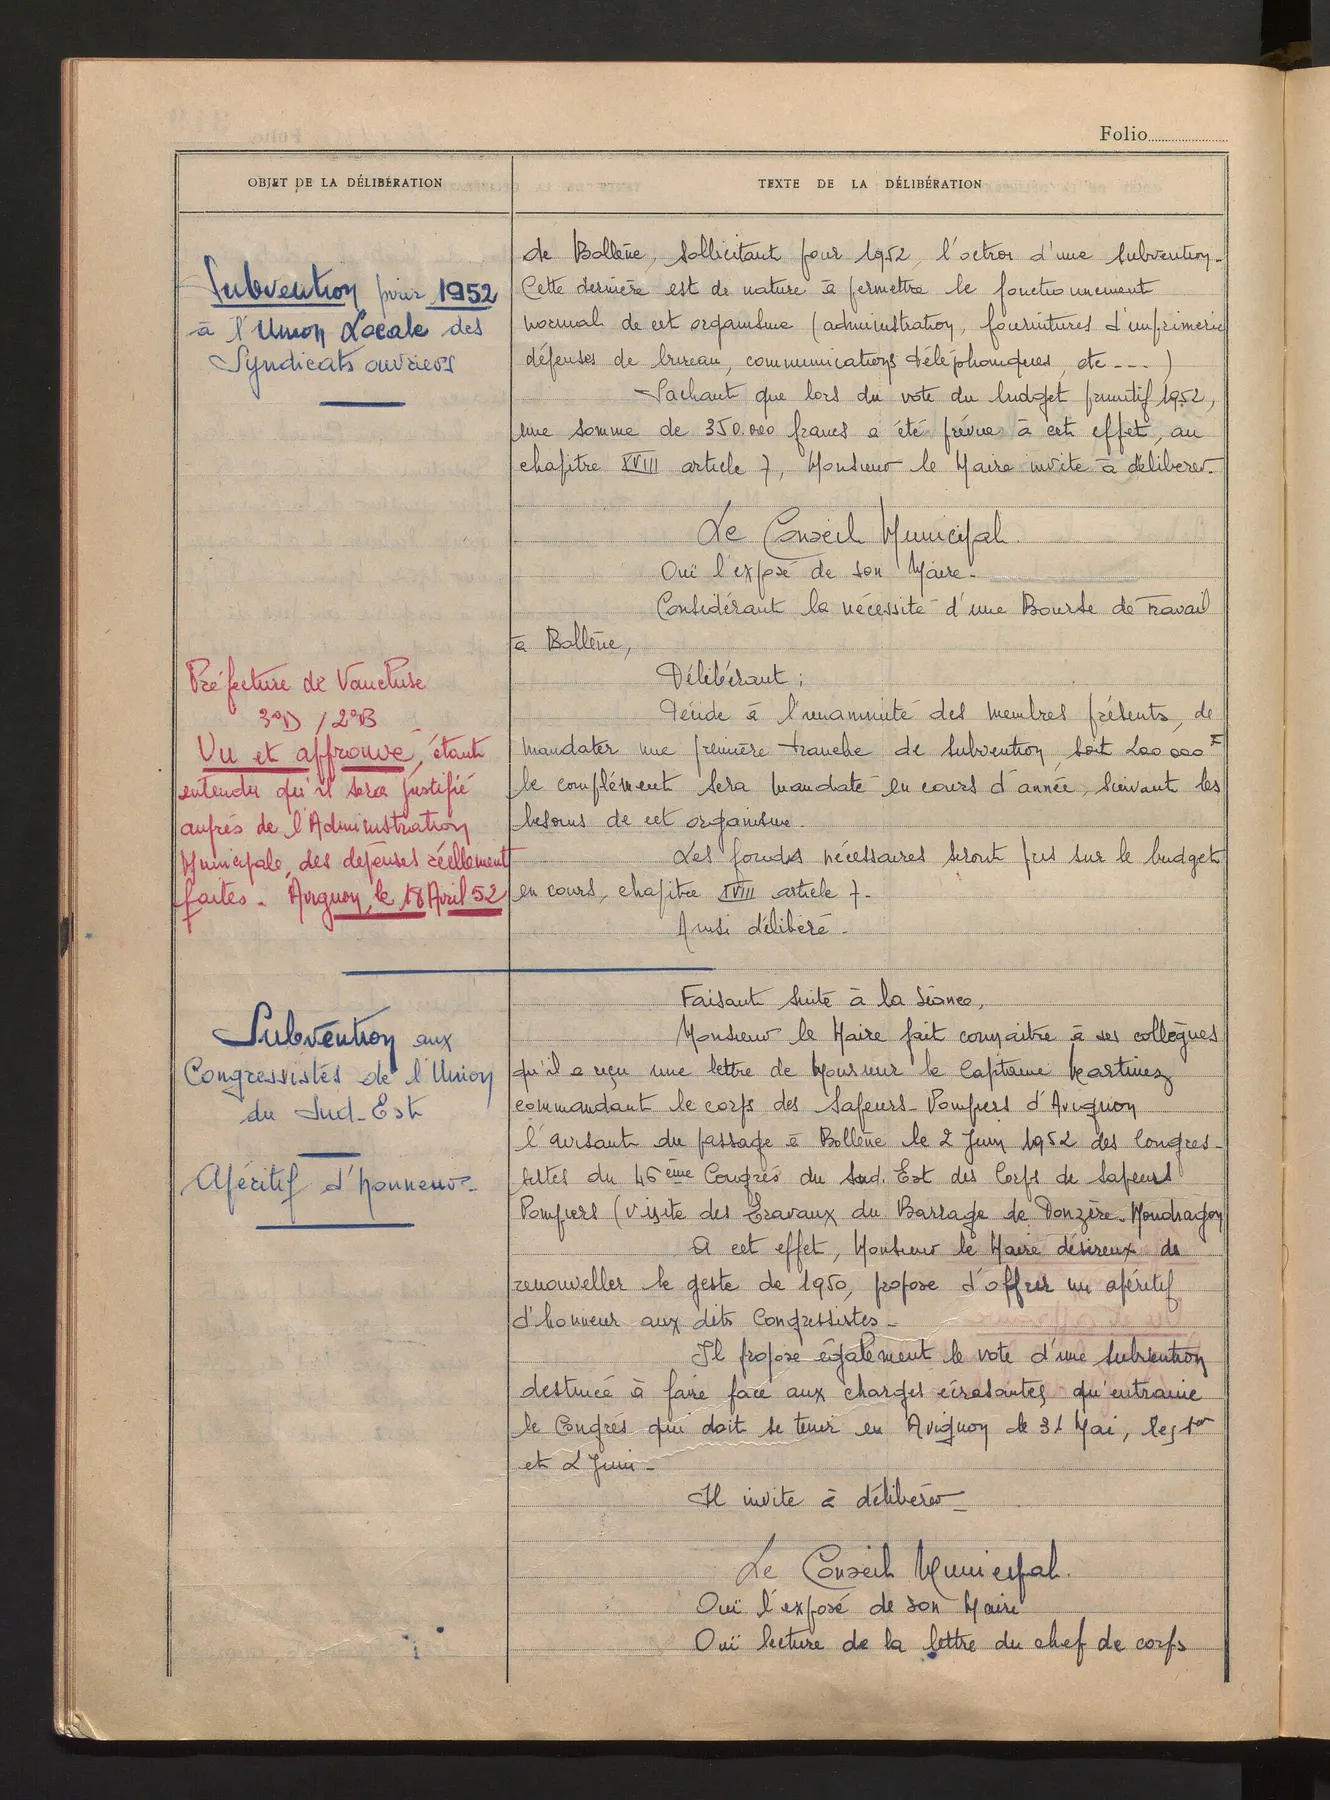 Folio
OBJET DE LA DÉLIBÉRATION
TEXTE DE LA DÉLIBÉRATION
Subvention pour 1952
à l'Union Locale des
Syndicats ouvriers
de Bollène, sollicitant pour 1952, l'octroi d'une subvention.
Cette dernière est de nature à permettre le fonctionnement
normal de cet organisme (administration, fournitures d'imprimerie
dépenses de bureau, communications téléphoniques, etc ---)
Sachant que lors du vote du budget primitif 1952,
une somme de 350.000 francs a été prévue à cet effet, au
chapitre XVIII article 7, Monsieur le Maire invite à délibérer.
Le Conseil Municipal.
Ouï l'exposé de son Maire.
Considérant la nécessité d'une Bourse de Travail
à Bollène,
Délibérant ;
Décide à l'unanimité des membres présents, de
mandater une première tranche de subvention, soit 200 000 F
le complément sera mandaté en cours d'année, suivant les
besoins de cet organisme.
Les fonds nécessaires seront pris sur le budget
en cours, chapitre XVIII article 7.
Ainsi délibéré.
Préfecture de Vaucluse
3°D / 2°B
Vu et approuvé, étant
entendu qu'il sera justifié
auprès de l'Administration
Municipale, des dépenses réellement
faites. Avignon, le 18 Avril 52
Subvention aux
Congressistes de l'Union
du Sud-Est
Apéritif d'honneur.
Faisant suite à la séance,
Monsieur le Maire fait connaître à ses collègues
qu'il a reçu une lettre de Monsieur le Capitaine Martinez
commandant le corps des Sapeurs-Pompiers d'Avignon
l'avisant du passage à Bollène le 2 Juin 1952 des Congres-
sistes du 46ème Congrès du Sud.Est des Corps de Sapeurs
Pompiers (visite des Travaux du Barrage de Donzère-Mondragon
A cet effet, Monsieur le Maire désireux de
renouveller le geste de 1950, propose d'offrir un apéritif
d'honneur aux dits Congressistes.
Il propose également le vote d'une subvention
destinée à faire face aux charges écrasantes, qu'entraine
le Congrès qui doit se tenir en Avignon le 31 Mai, les 1er
et 2 Juin.
Il invite à délibérer.
Le Conseil Municipal.
Ouï l'exposé de son Maire
Ouï lecture de la lettre du chef de corps